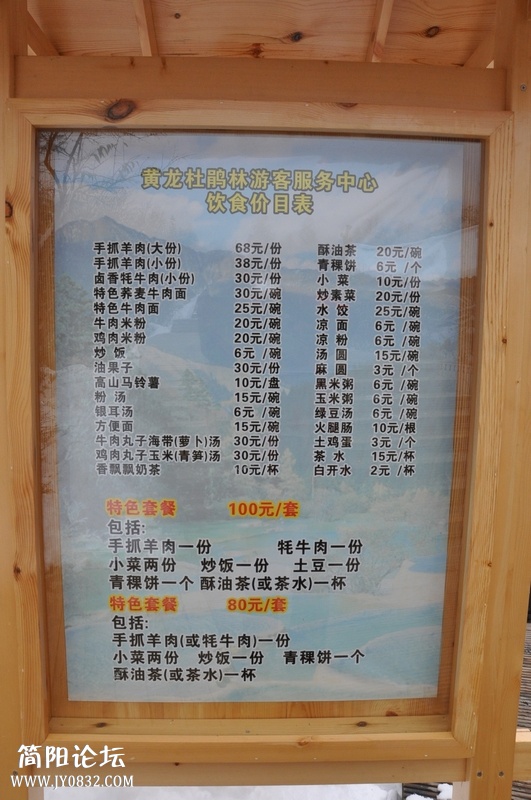 黄龙杜鹃林游客服务中心
饮食价目表
手抓羊肉(大份) 68元/份
手抓羊肉(小份) 38元/份
卤香牦牛肉(小份) 30元/份
特色荞麦牛肉面 30元/碗
特色牛肉面 25元/碗
牛肉米粉 20元/碗
鸡肉米粉 20元/碗
炒 饭 6元 /碗
油果子 30元/份
高山马铃薯 10元/盘
粉 汤 15元/碗
银耳汤 6元 /碗
方便面 15元/碗
牛肉丸子海带(萝卜)汤 30元/份
鸡肉丸子玉米(青笋)汤 30元/份
香飘飘奶茶 10元/杯
酥油茶 20元/碗
青稞饼 6元 /个
小 菜 10元/份
炒素菜 20元/份
水 饺 25元/碗
凉 面 6元 /碗
凉 粉 6元 /碗
汤 圆 15元/碗
麻 圆 3元 /个
黑米粥 6元 /碗
玉米粥 6元 /碗
绿豆汤 6元 /碗
火腿肠 10元/根
土鸡蛋 3元 /个
茶 水 15元/杯
白开水 2元 /杯
特色套餐 100元/套
包括:
手抓羊肉一份 牦牛肉一份
小菜两份 炒饭一份 土豆一份
青稞饼一个 酥油茶(或茶水)一杯
特色套餐 80元/套
包括:
手抓羊肉(或牦牛肉)一份
小菜两份 炒饭一份 青稞饼一个
酥油茶(或茶水)一杯
简阳论坛
www.JY0832.COM